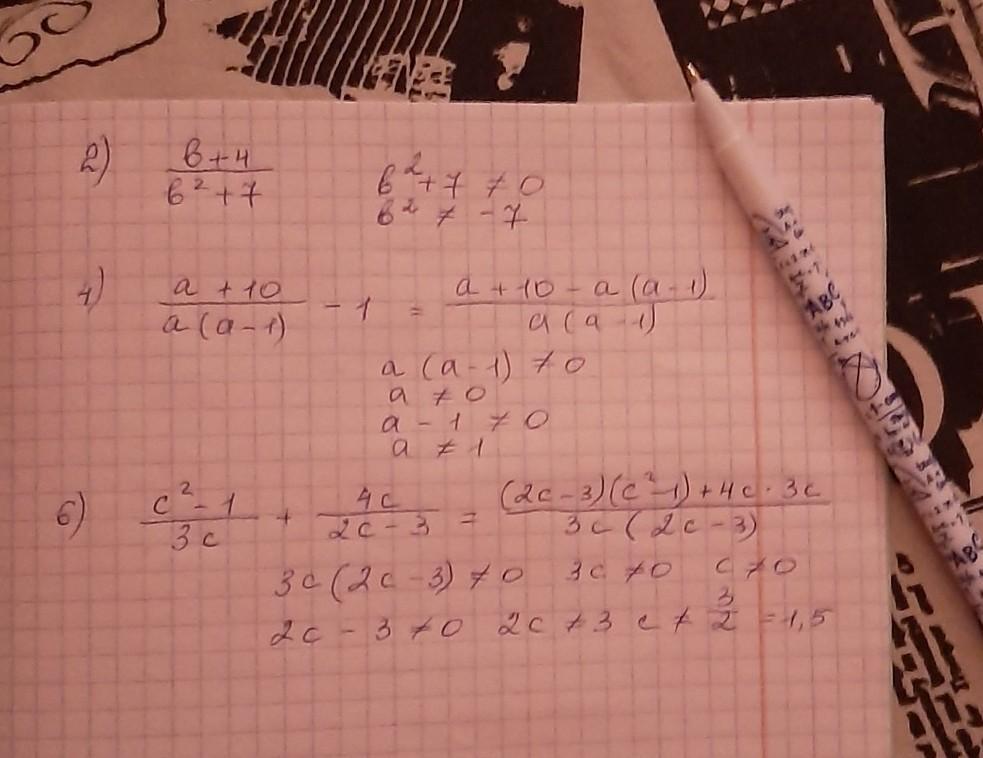 2) (в+4)/(в²+7) в²+7 ≠ 0
в² ≠ -7
4) (a+10)/(a(a-1)) - 1 = (a+10-a(a-1))/(a(a-1))
a(a-1) ≠ 0
a ≠ 0
a - 1 ≠ 0
a ≠ 1
6) (c²-1)/(3c) + (4c)/(2c-3) = ((2c-3)(c²-1)+4c·3c)/(3c(2c-3))
3c(2c-3) ≠ 0 3c ≠ 0 c ≠ 0
2c - 3 ≠ 0 2c ≠ 3 c ≠ 3/2 = 1,5
ABC